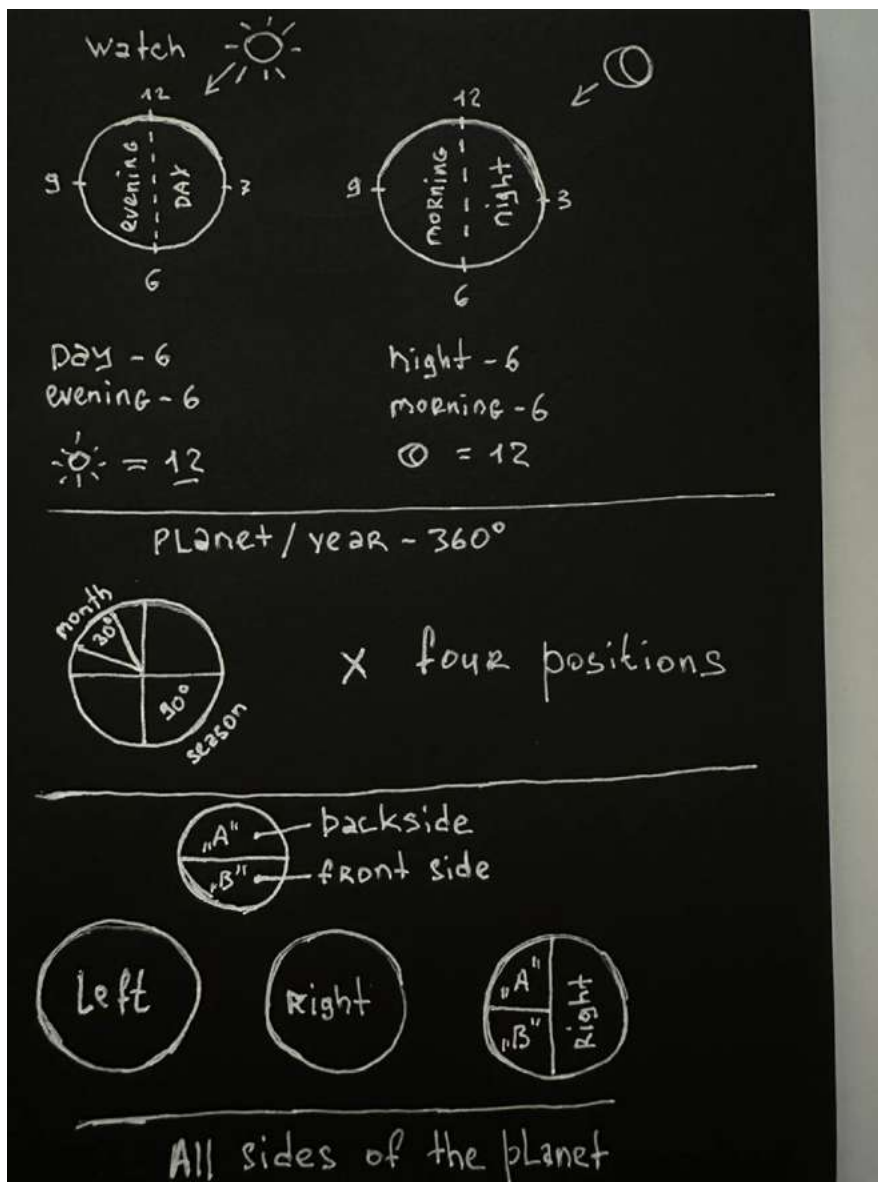 watch
12 12
9 evening DAY 3 9 morning night 3
6 6
Day - 6 night - 6
evening - 6 morning - 6
= 12 = 12
Planet / year - 360°
month
30°
90°
season
x four positions
„A" backside
„B" front side
Left Right „A" „B" Right
All sides of the planet